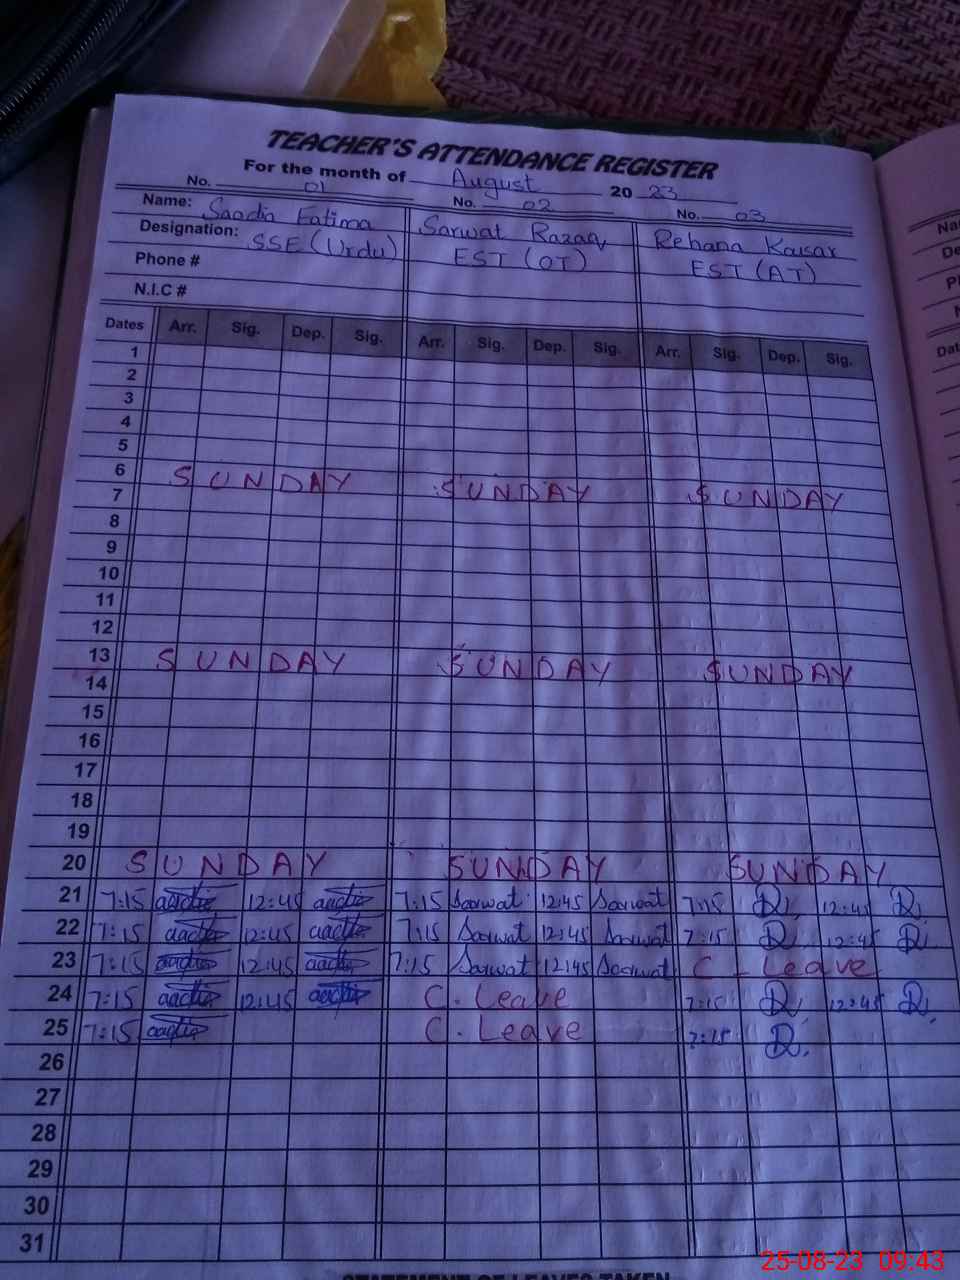 TEACHER'S ATTENDANCE REGISTER
For the month of August 20 23
No. 01 No. 02 No. 03
Name: Saadia Fatima Sarwat Razaq Rehana Kausar
Designation: SSE (Urdu) EST (OT) EST (AT)
Phone #
N.I.C #
Dates Arr. Sig. Dep. Sig. Arr. Sig. Dep. Sig. Arr. Sig. Dep. Sig.
1
2
3
4
5
6 SUNDAY SUNDAY SUNDAY
7
8
9
10
11
12
13 SUNDAY SUNDAY SUNDAY
14
15
16
17
18
19
20 SUNDAY SUNDAY SUNDAY
21 7:15 12:45 7:15 Sarwat 12:45 Sarwat 7:15 12:45
22 7:15 12:45 7:15 Sarwat 12:45 Sarwat 7:15 12:45
23 7:15 12:45 7:15 Sarwat 12:45 Sarwat C - Leave
24 7:15 12:45 C. Leave 7:15 12:45
25 7:15 C. Leave 7:15
26
27
28
29
30
31
STATEMENT OF LEAVES TAKEN
25-08-23 09:43